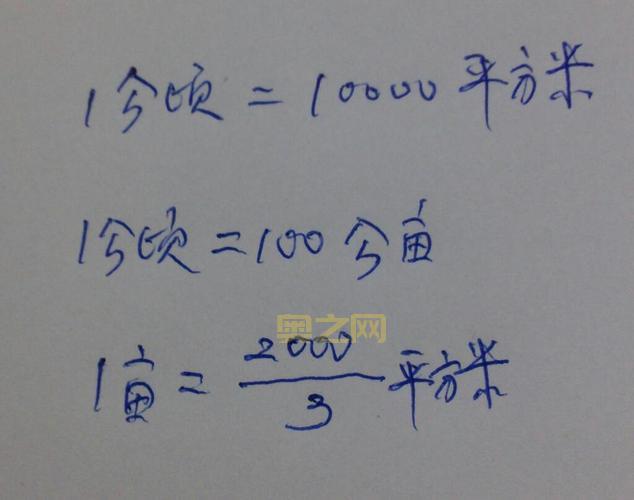 1公顷=10000平方米
1公顷=100公亩
奥之网
1亩=2000/3平方米